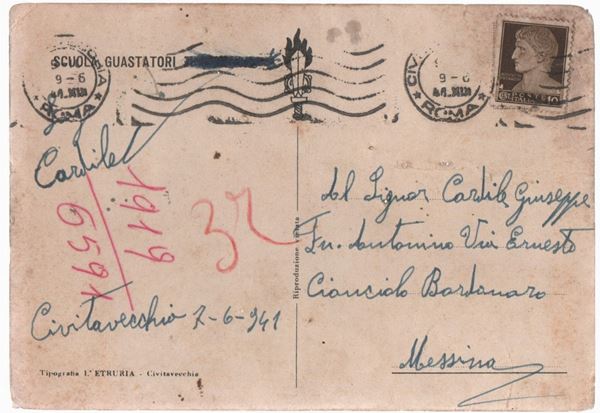 SCUOLA GUASTATORI
CIVITAVECCHIA
9-6
ROMA
CIVITAVECCHIA
9-6
ROMA
POSTE
10
Cardile
1919
6591
32
Civitavecchia 7-6-941
Tipografia L'ETRURIA - Civitavecchia
Riproduzione vietata
Al Signor Cardile Giuseppe
Fu Antonino Via Ernesto
Cianciolo Bordonaro
Messina